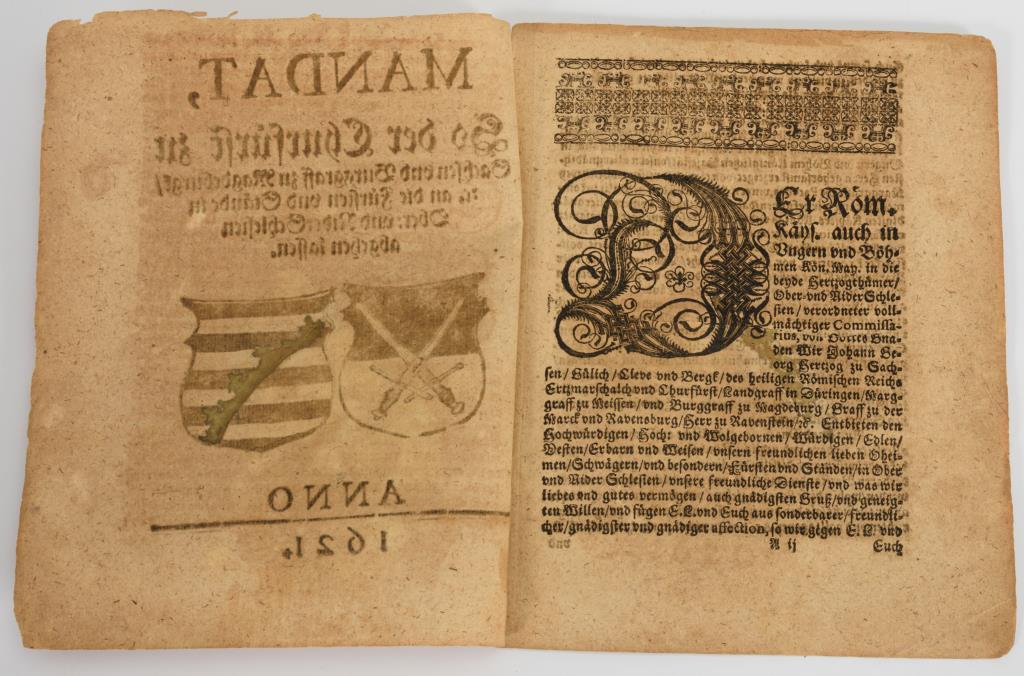 MANDAT,
So der Churfürst zu
Sachsen vnd Burggraff zu Magdeburg/
ꝛc. an die Fürsten vnd Stände in
Ober: vnd Nider Schlesien
abgehen lassen.
ANNO
1621.
DEr Röm.
Käys. auch in
Vngern vnd Böh-
men Kön. May. in die
beyde Hertzogthümer/
Ober vnd Nider Schle-
sien/ verordneter voll-
mächtiger Commissa-
rius, von Gottes Gna-
den Wir Johann Ge-
org Hertzog zu Sach-
sen/ Gülich/ Cleve vnd Bergk/ des heiligen Römischen Reichs
Ertzmarschalch vnd Churfürst/ Landgraff in Düringen/ Marg-
graff zu Meissen/ vnd Burggraff zu Magdeburg/ Graff zu der
Marck vnd Ravensburg/ Herr zu Ravenstein/ ꝛc. Entbieten den
Hochwürdigen/ Hoch: vnd Wolgebornen/ Würdigen/ Edlen/
Vesten/ Erbarn vnd Weisen/ vnsern freundlichen lieben Ohei-
men/ Schwägern/ vnd besondern/ Fürsten vnd Ständen/ in Ober
vnd Nider Schlesien/ vnsere freundliche Dienste/ vnd was wir
liebes vnd gutes vermögen/ auch gnädigsten Gruß/ vnd geneig-
ten Willen/ vnd fügen E. L. vnd Euch aus sonderbarer/ freundli-
cher/ gnädigster vnd gnädiger affection, so wir gegen E. L. vnd
A ij Euch